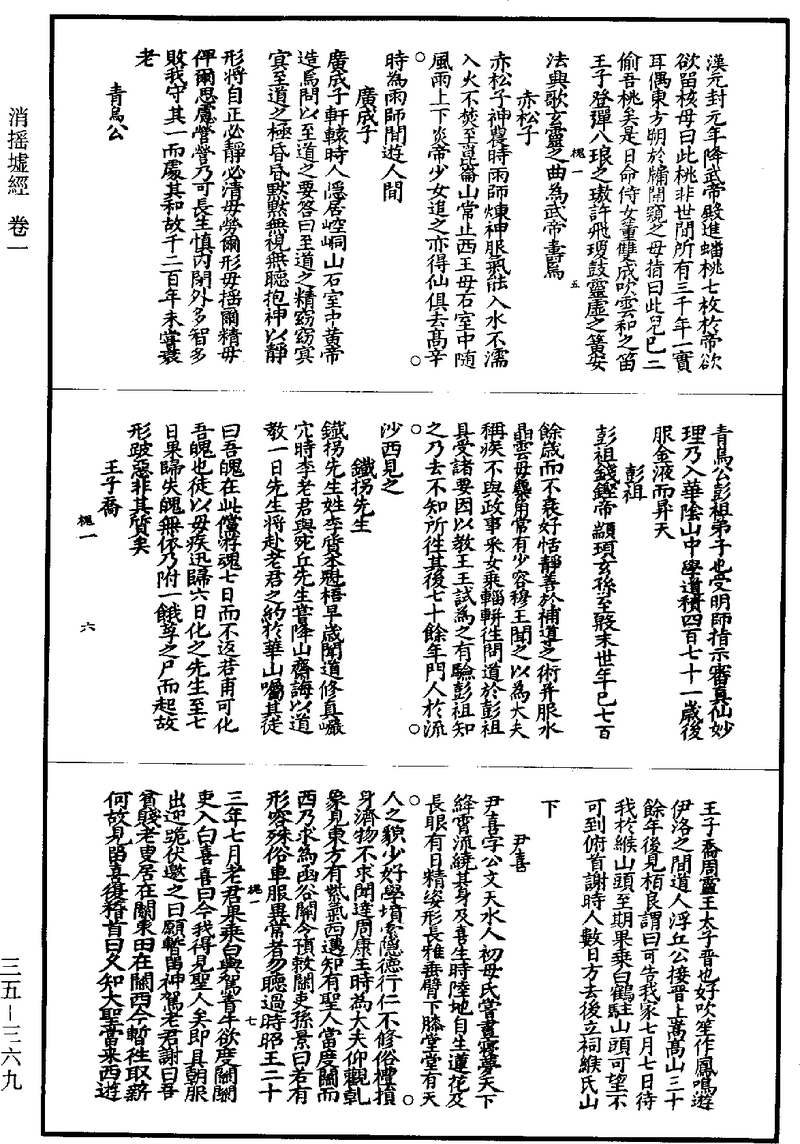 消搖墟經 卷一
三五—三六九
漢元封元年降武帝殿進蟠桃七枚於帝欲
欲留核母曰此桃非世間所有三千年一實
耳偶東方朔於牖間窺之母指曰此兒已二
偷吾桃矣是日命侍女董雙成吹雲和之笛
王子登彈八琅之璈許飛瓊鼓靈虛之簧安
槐一
五
法興歌玄靈之曲為武帝壽焉
赤松子
赤松子神農時雨師煉神服氣能入水不濡
入火不焚至崑崙山常止西王母石室中隨
風雨上下炎帝少女追之亦得仙俱去高辛
時為雨師閒遊人間
廣成子
廣成子軒轅時人隱居崆峒山石室中黃帝
造焉問以至道之要答曰至道之精窈窈冥
冥至道之極昏昏默默無視無聽抱神以靜
形將自正必靜必清毋勞爾形毋搖爾精毋
俾爾思慮營營乃可長生慎內閉外多智多
敗我守其一而處其和故千二百年未嘗衰
老
青烏公
青烏公彭祖弟子也受明師指示審真仙妙
理乃入華陰山中學道積四百七十一歲後
服金液而昇天
彭祖
彭祖錢鏗帝顓頊玄孫至殷末世年已七百
餘歲而不衰好恬靜善於補導之術并服水
晶雲母麋角常有少容穆王聞之以為大夫
稱疾不與政事采女乘輜軿往問道於彭祖
具受諸要因以教王王試為之有驗彭祖知
之乃去不知所往其後七十餘年門人於流
沙西見之
鐵拐先生
鐵拐先生姓李質本魁梧早歲聞道修真巖
穴時李老君與宛丘先生嘗降山齋誨以道
教一日先生將赴老君之約於華山囑其徒
曰吾魄在此儻游魂七日而不返若甫可化
吾魄也徒以母疾迅歸六日化之先生至七
日果歸失魄無依乃附一餓莩之尸而起故
形跛惡非其質矣
王子喬
槐一
六
王子喬周靈王太子晉也好吹笙作鳳鳴遊
伊洛之間道人浮丘公接晉上嵩高山三十
餘年後見栢良謂曰可告我家七月七日待
我於緱山頭至期果乘白鶴駐山頭可望不
可到俯首謝時人數日方去後立祠緱氏山
下
尹喜
尹喜字公文天水人初母氏嘗晝寐夢天下
絳霄流繞其身及喜生時陸地自生蓮花及
長眼有日精姿形長雅垂臂下膝堂堂有天
人之貌少好學墳索隱德行仁不修俗禮損
身濟物不求聞達周康王時為大夫仰觀乾
象見東方有紫氣西邁知有聖人當度關而
西乃求為函谷關令預敕關吏孫景曰若有
形容殊俗車服異常者勿聽過時昭王二十
槐一
七
三年七月老君果乘白輿駕青牛欲度關關
吏入白喜喜曰今我得見聖人矣即具朝服
出迎跪伏邀之曰願暫留神駕老君謝曰吾
貧賤老叟居在關東田在關西今暫往取薪
何故見留喜復稽首曰久知大聖當來西遊